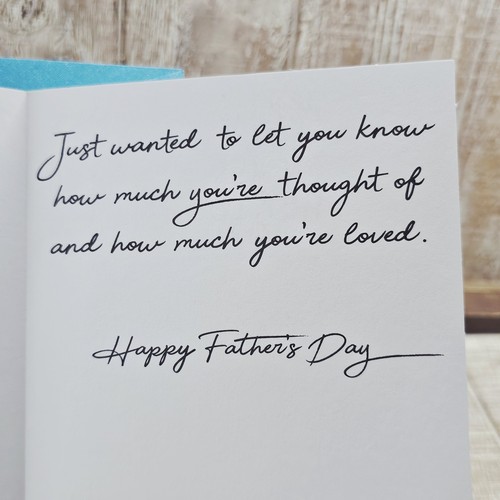 Just wanted to let you know
how much you're thought of
and how much you're loved.
Happy Father's Day